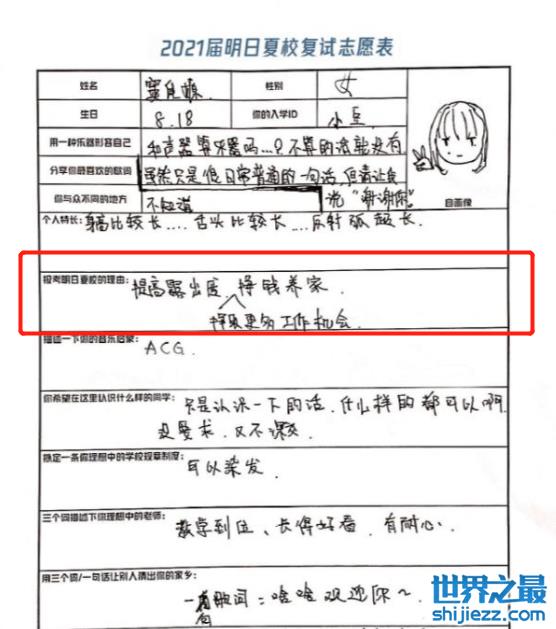 2021届明日夏校复试志愿表
姓名 窦佳嫄 性别 女
生日 8.18 你的入学ID 小豆
用一种乐器形容自己 和声器算乐器吗....?不算的话就没有
分享你最喜欢的歌词 虽然只是他日常普通的一句话,但请让我
说"谢谢你".
你与众不同的地方 不知道
自画像
个人特长:身高比较长....舌头比较长....反射弧超长.
报考明日夏校的理由:提高露出度.挣钱养家.
更多工作机会
描述一下你的音乐启蒙:
ACG.
你希望在这里认识什么样的同学:只是认识一下的话,什么样的都可以啊.
没要求,又不
拟定一条你理想中的学校规章制度:
可以染发
三个词描述下你理想中的老师:
教学到位、长得好看、有耐心.
用三个词/一句话让别人猜出你的家乡:
歌词:啥啥欢迎你~
有
世界之最
shijiezz.com